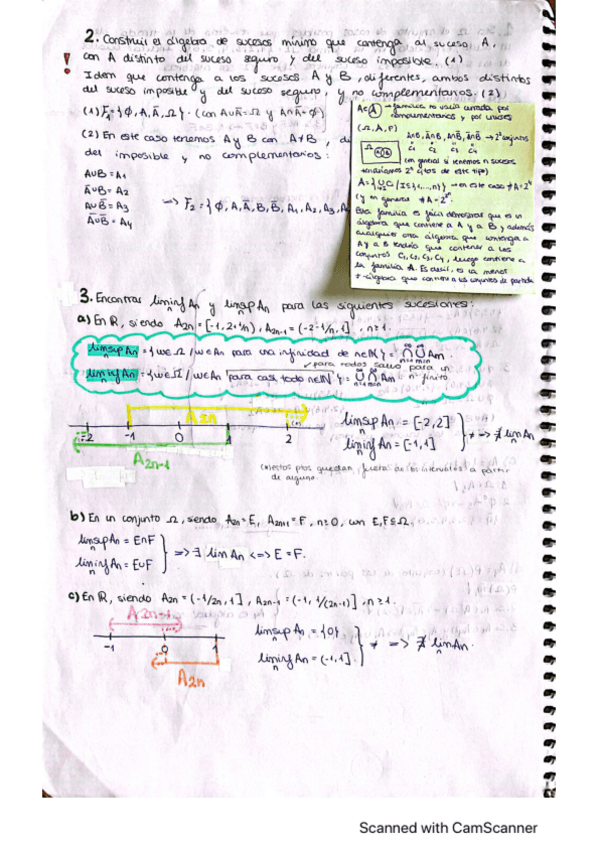 2. Construir el álgebra de sucesos mínimo que contenga al suceso A,
! con A distinto del suceso seguro y del suceso imposible. (1)
Idem que contenga a los sucesos A y B, diferentes, ambos distintos
del suceso imposible y del suceso seguro, y no complementarios. (2)
(1) F₁ = {∅, A, Ā, Ω} · (con A∪Ā = Ω y A∩Ā = ∅)
(2) En este caso tenemos A y B con A≠B, di
del imposible y no complementarios:
A∪B = A₁
Ā∪B = A₂
A∪B̄ = A₃
Ā∪B̄ = A₄
=> F₂ = {∅, A, Ā, B, B̄, A₁, A₂, A₃, A₄
familia no vacía cerrada por
complementarios y por uniones
(Ω, A, P)
A∩B, Ā∩B, A∩B̄, Ā∩B̄ → 2² conjuntos
C₁ C₂ C₃ C₄
Ω
(en general si tenemos n sucesos
tendríamos 2ⁿ ctos de este tipo)
→ en este caso
(y en general
Esta familia es fácil demostrar que es un
álgebra que contiene a A y a B y además
cualquier otra álgebra que contenga a
A y a B tendría que contener a los
conjuntos C₁, C₂, C₃, C₄, luego contiene a
la familia A. Es decir, es la menor
σ-álgebra que contiene a los conjuntos de partida
3. Encontrar liminf An y limsup An para las siguientes sucesiones:
a) En R, siendo A2n = [-1, 2+1/n), A2n-1 = (-2-1/n, 1], n≥1.
limsup An = {w∈Ω / w∈An para una infinidad de n∈N} = ∩∪ Am.
para todos salvo para un
nº finito.
liminf An = {w∈Ω / w∈An para casi todo n∈N} = ∪∩ Am
A2n
-2 -1 0 1 2
A2n-1
limsup An = [-2,2]
liminf An = [-1,1]
≠ => ∄ lim An
(estos ptos quedan fuera de los intervalos a partir
de alguno.
b) En un conjunto Ω, siendo A2n = E, A2n+1 = F, n≥0, con E,F⊆Ω.
limsup An = E∩F
liminf An = E∪F
=> ∃ lim An <=> E = F.
c) En R, siendo A2n = (-1/2n, 1], A2n-1 = (-1, 1/(2n-1)], n≥1.
A2n-1
-1 0 1
A2n
limsup An = {0}
liminf An = (-1,1]
≠ => ∄ lim An.
Scanned with CamScanner